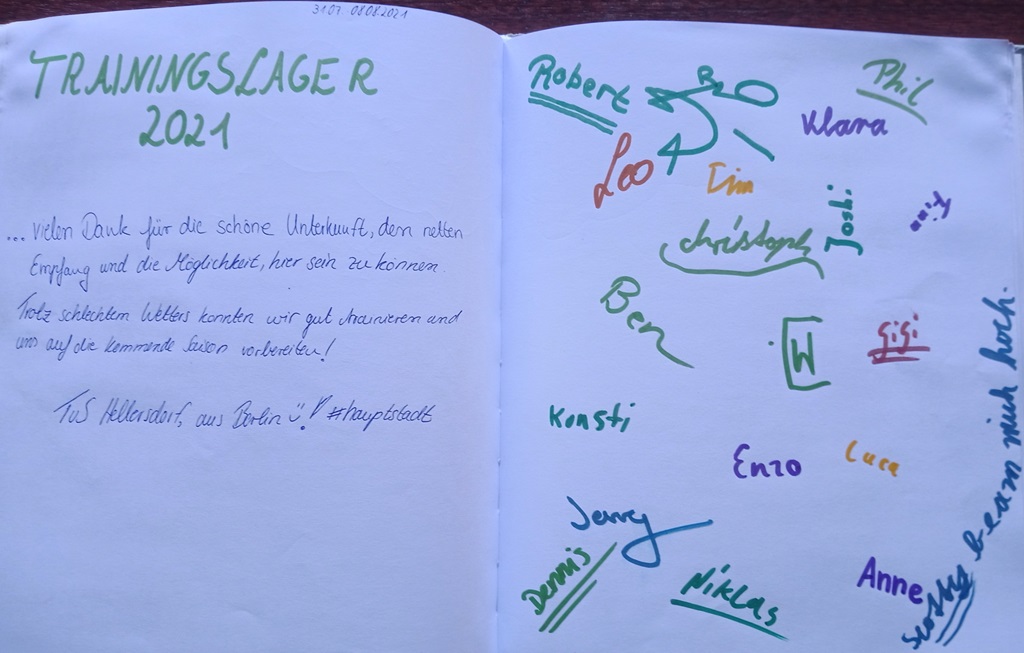 31.07.-08.08.2021
TRAININGSLAGER
2021
... vielen Dank für die schöne Unterkunft, den netten
Empfang und die Möglichkeit, hier sein zu können.
Trotz schlechtem Wetters konnten wir gut trainieren und
uns auf die kommende Saison vorbereiten!
TuS Hellersdorf, aus Berlin ü! #hauptstadt
Robert
Phil
Klara
Leo
Tim
Joshi
Christoph
Ben
W
Gigi
Konsti
Enzo
Luca
Jerry
Dennis
Niklas
Anne
Scotty beam mich hoch.